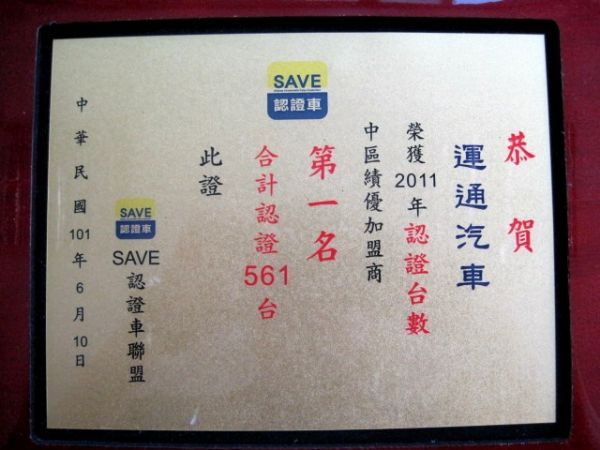 SAVE
認證車
恭賀
運通汽車
榮獲2011年認證台數
中區績優加盟商
第一名
合計認證561台
此證
SAVE
認證車
SAVE認證車聯盟
中華民國101年6月10日